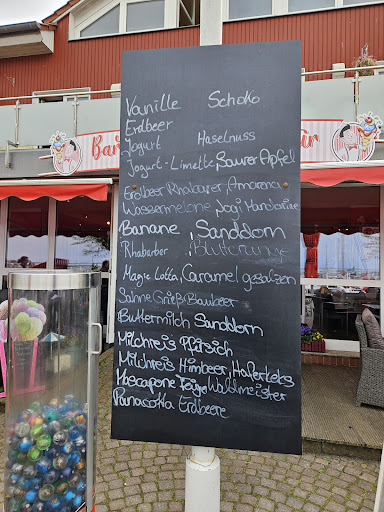 Vanille Schoko
Erdbeer
Jogurt Haselnuss
Jogurt-Limette, Saurer Apfel
Erdbeer Rhabarber Amarena
Wassermelone, Jogi Mandarine
Banane, Sanddorn
Rhabarber
Magic Lotta, Caramel gesalzen
Sahne Grieß Blaubeer
Buttermilch Sanddorn
Milchreis Pfirsich
Milchreis Himbeer, Haferkeks
Mascapone Feige Waldmeister
Panacotta Erdbeere
Bar